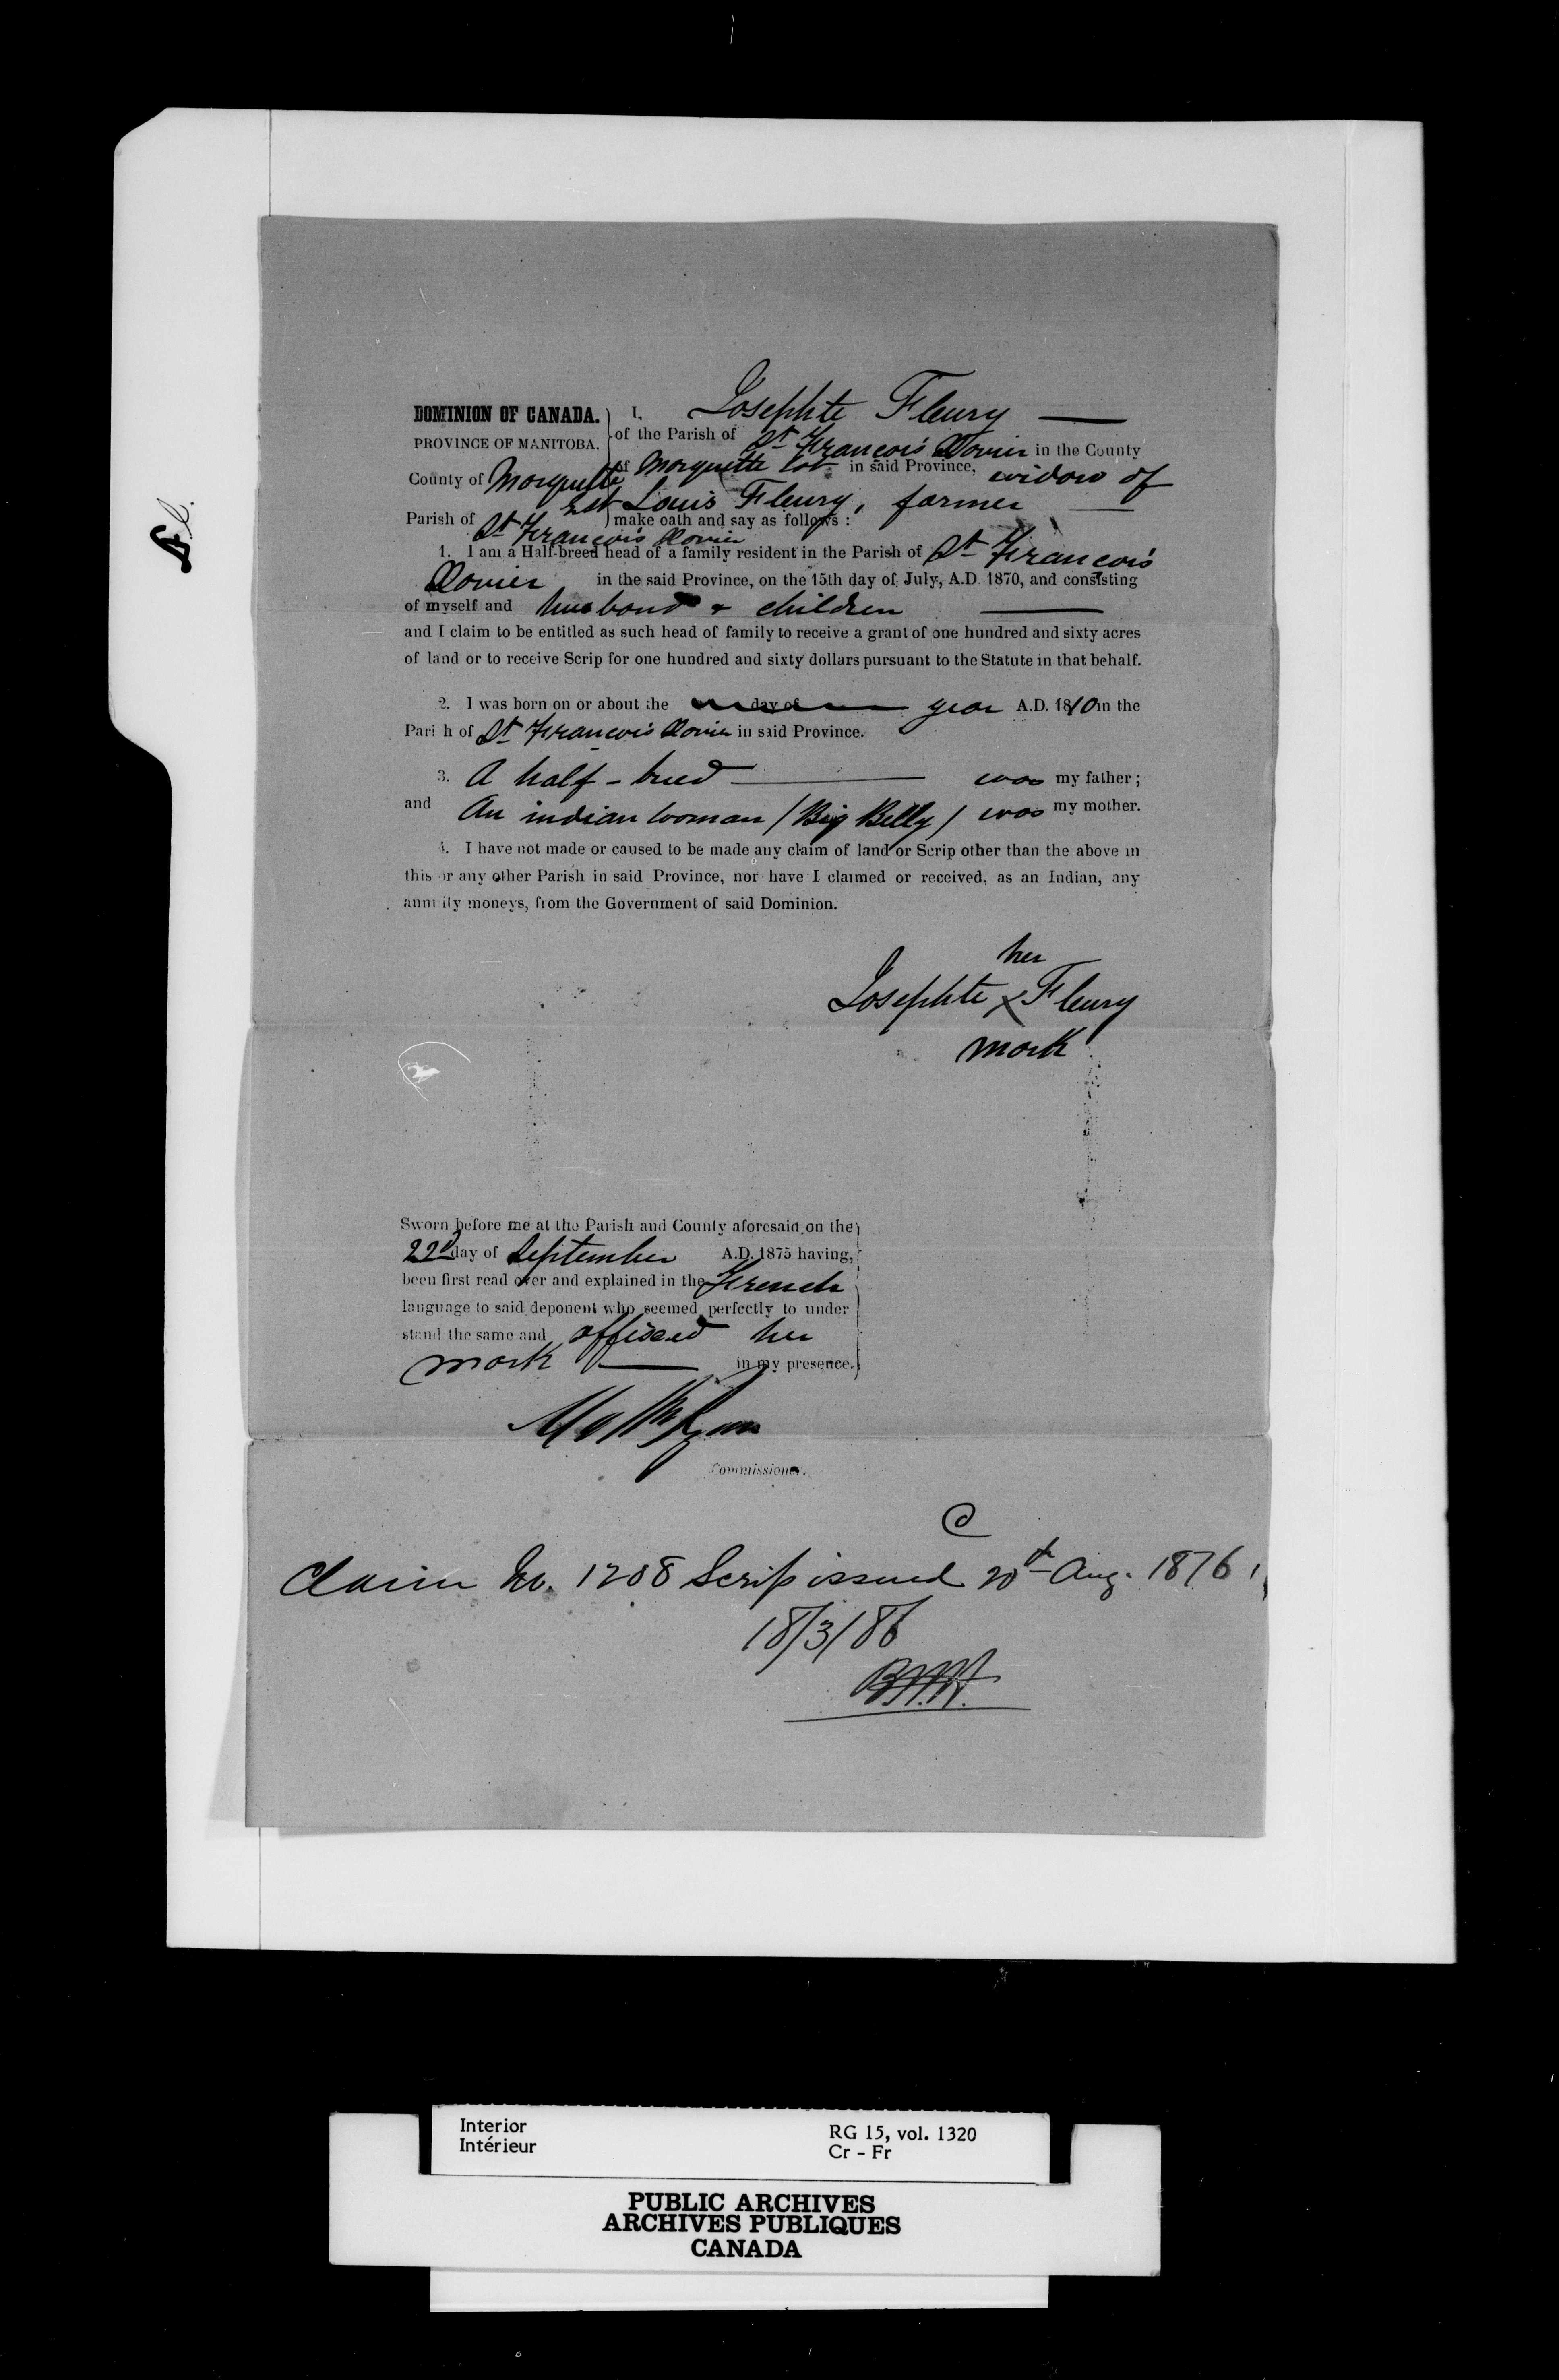 DOMINION OF CANADA.
PROVINCE OF MANITOBA.
County of Marquette
Parish of St François Xavier
I, Josephte Fleury
of the Parish of St François Xavier in the County
of Marquette in said Province, widow of
Louis Fleury, farmer
make oath and say as follows:
1. I am a Half-breed head of a family resident in the Parish of St François
Xavier in the said Province, on the 15th day of July, A.D. 1870, and consisting
of myself and husband & children
and I claim to be entitled as such head of family to receive a grant of one hundred and sixty acres
of land or to receive Scrip for one hundred and sixty dollars pursuant to the Statute in that behalf.
2. I was born on or about the day of year A.D. 1810 in the
Pari h of St François Xavier in said Province.
3. A half-breed was my father;
and An indian woman (Big Belly) was my mother.
4. I have not made or caused to be made any claim of land or Scrip other than the above in
this or any other Parish in said Province, nor have I claimed or received, as an Indian, any
annuity moneys, from the Government of said Dominion.
her
Josephte X Fleury
mark
Sworn before me at the Parish and County aforesaid, on the
22d day of September A.D. 1875 having,
been first read over and explained in the French
language to said deponent who seemed perfectly to under
stand the same and affixed her
mark in my presence.
Commissioner.
C
Claim No. 1208 Scrip issued 20th Aug. 1876
18/3/86
Interior
Intérieur
RG 15, vol. 1320
Cr - Fr
PUBLIC ARCHIVES
ARCHIVES PUBLIQUES
CANADA